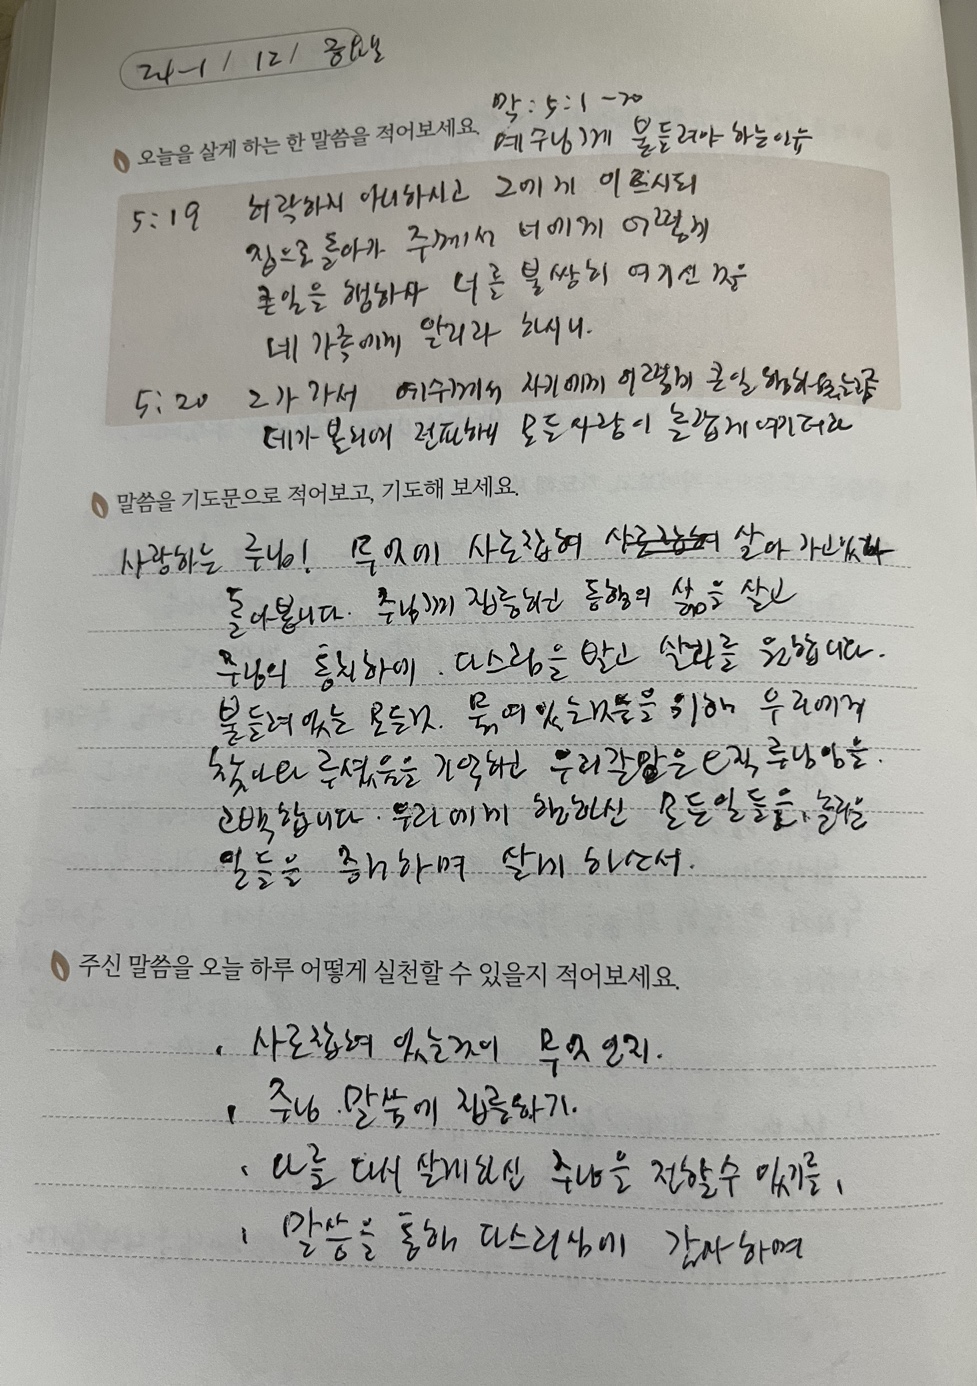 24-1/12/금요일
막:5:1-20
오늘을 살게 하는 한 말씀을 적어보세요.
예수님께 붙들려야 하는이유
5:19 허락하지 아니하시고 그에게 이르시되
집으로돌아가 주께서 너에게 어떻게
큰일을 행하사 너를 불쌍히 여기신 것을
네 가족에게 알리라 하시니.
5:20 그가 가서 예수께서 자기에게 어떻게 큰일 행하셨는지를
데가볼리에 전파하매 모든사람이 놀랍게 여기더라
말씀을 기도문으로 적어보고, 기도해 보세요.
사랑하는 주님! 무엇에 사로잡혀 사로잡혀 살아 가고있나
돌아봅니다. 주님께 집중하고 동행의 삶을 살고
주님의 통치하에. 다스림을 받고 살기를 원합니다.
붙들려 있는 모든것. 묶여있는것들을 위해 우리에게
찾아와 주셨음을 기억하고 우리갈망은 오직 주님임을.
고백합니다. 우리에게 행하신 모든일들을, 놀라운
일들을 증거하며 살게 하소서.
주신 말씀을 오늘 하루 어떻게 실천할 수 있을지 적어보세요.
. 사로잡혀 있는것이 무엇인지.
. 주님 말씀에 집중하기.
. 나를 다시 살게하신 주님을 전할수 있기를,
. 말씀을 통해 다스리심에 감사하며